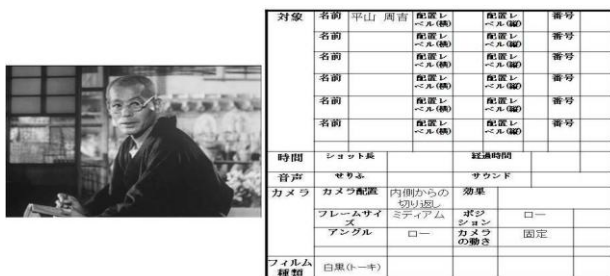 対象 名前 平山 周吉 配置レベル(横) 配置レベル(縦) 番号
名前 配置レベル(横) 配置レベル(縦) 番号
名前 配置レベル(横) 配置レベル(縦) 番号
名前 配置レベル(横) 配置レベル(縦) 番号
名前 配置レベル(横) 配置レベル(縦) 番号
名前 配置レベル(横) 配置レベル(縦) 番号
時間 ショット長 経過時間
音声 せりふ サウンド
カメラ カメラ配置 内側からの切り返し 効果
フレームサイズ ミディアム ポジション ロー
アングル ロー カメラの動き 固定
フィルム種類 白黒(トーキ)